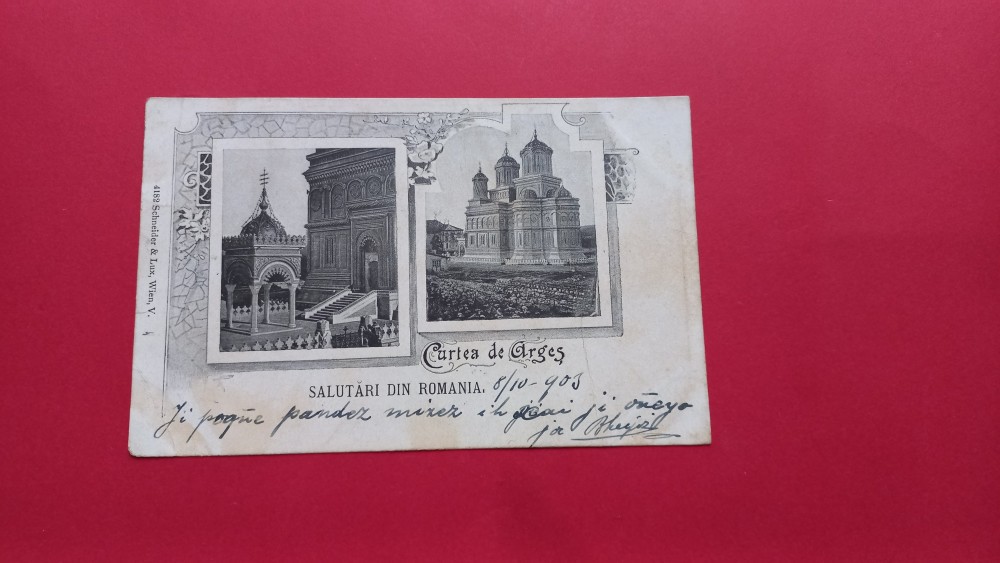 4182 Schneider & Lux, Wien, V.
Curtea de Argeș
SALUTĂRI DIN ROMANIA. 8/10-903
Ji pogñe pandez mizez ih ji oñeyo
ja